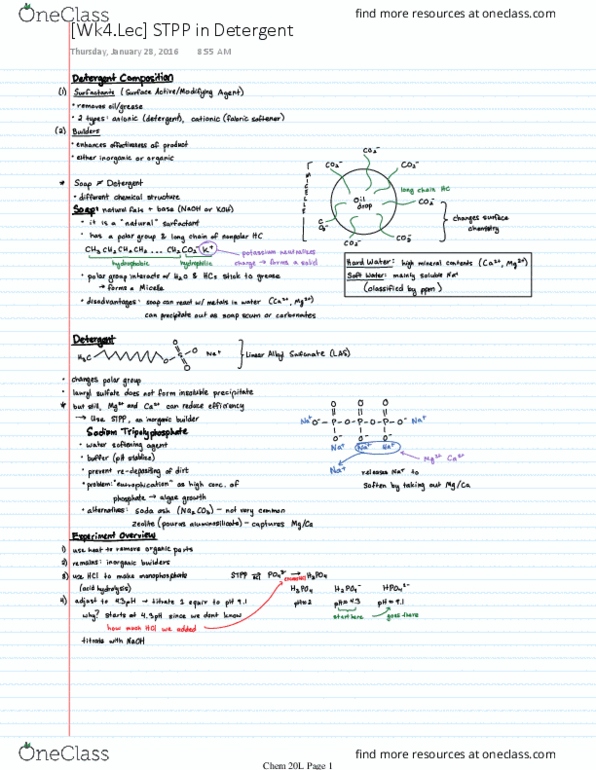 OneClass
find more resources at oneclass.com
[Wk4.Lec] STPP in Detergent
Thursday, January 28, 2016 8:55 AM
Detergent Composition
(1) Surfactants (Surface Active/Modifying Agent)
• removes oil/grease
• 2 types: anionic (detergent), cationic (fabric softener)
(2) Builders
• enhances effectiveness of product
• either inorganic or organic
* Soap ≠ Detergent
• different chemical structure
Soap: natural fats + base (NaOH or KOH)
• it is a "natural" surfactant
• has a polar group & long chain of nonpolar HC
CH3 CH2 CH2 CH2 ... CH2 CO2- K+
hydrophobic hydrophilic
potassium neutralizes
charge → forms a solid
• polar group interacts w/ H2O & HCs stick to grease
→ forms a Micelle
• disadvantages: soap can react w/ metals in water (Ca2+, Mg2+)
can precipitate out as soap scum or carbonates
MICELLE
CO2-
CO2-
CO2-
CO2-
CO2-
CO2-
CO2-
Oil
drop
long chain HC
changes surface
chemistry
Hard Water: high mineral contents (Ca2+, Mg2+)
Soft Water: mainly soluble Na+
(classified by ppm)
Detergent
H3C O S O O O- Na+
Linear Alkyl Sulfonate (LAS)
• changes polar group
• lauryl sulfate does not form insoluble precipitate
* but still, Mg2+ and Ca2+ can reduce efficiency
→ Use STPP, an inorganic builder
Sodium Tripolyphosphate
• water softening agent
• buffer (pH stablize)
• prevent re-depositing of dirt
• problem: "eutrophication" as high conc. of
phosphate → algae growth
• alternatives: soda ash (Na2CO3) – not very common
zeolite (pourus aluminosilicate) – captures Mg/Ca
O O O
Na+ O- – P – O – P – O – P – O- Na+
O- O- O-
Na+ Na+ Na+
Na+
Mg2+ Ca2+
releases Na+ to
soften by taking out Mg/Ca
Experiment Overview
1) use heat to remove organic parts
2) remains: inorganic builders
3) use HCl to make monophosphate
(acid hydrolysis)
STPP HCl PO4 3- → H3PO4
H3PO4 H2PO4- HPO4 2-
pH=2 pH=4.3 pH=9.1
start here goes there
4) adjust to 4.3pH → titrate 1 equiv to pH 9.1
why? starts at 4.3pH since we dont know
how much HCl we added
titrate with NaOH
OneClass
find more resources at oneclass.com
Chem 20L Page 1